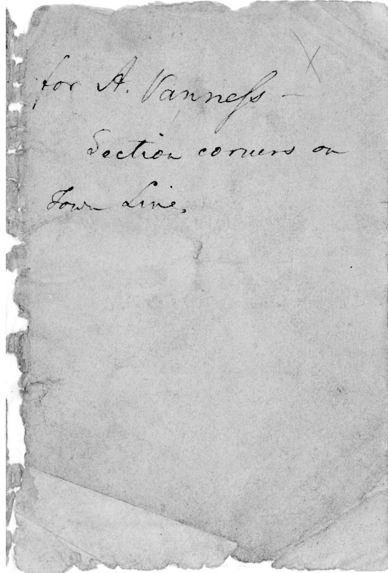 for A. Vanness –
Section corners on
Town Line.